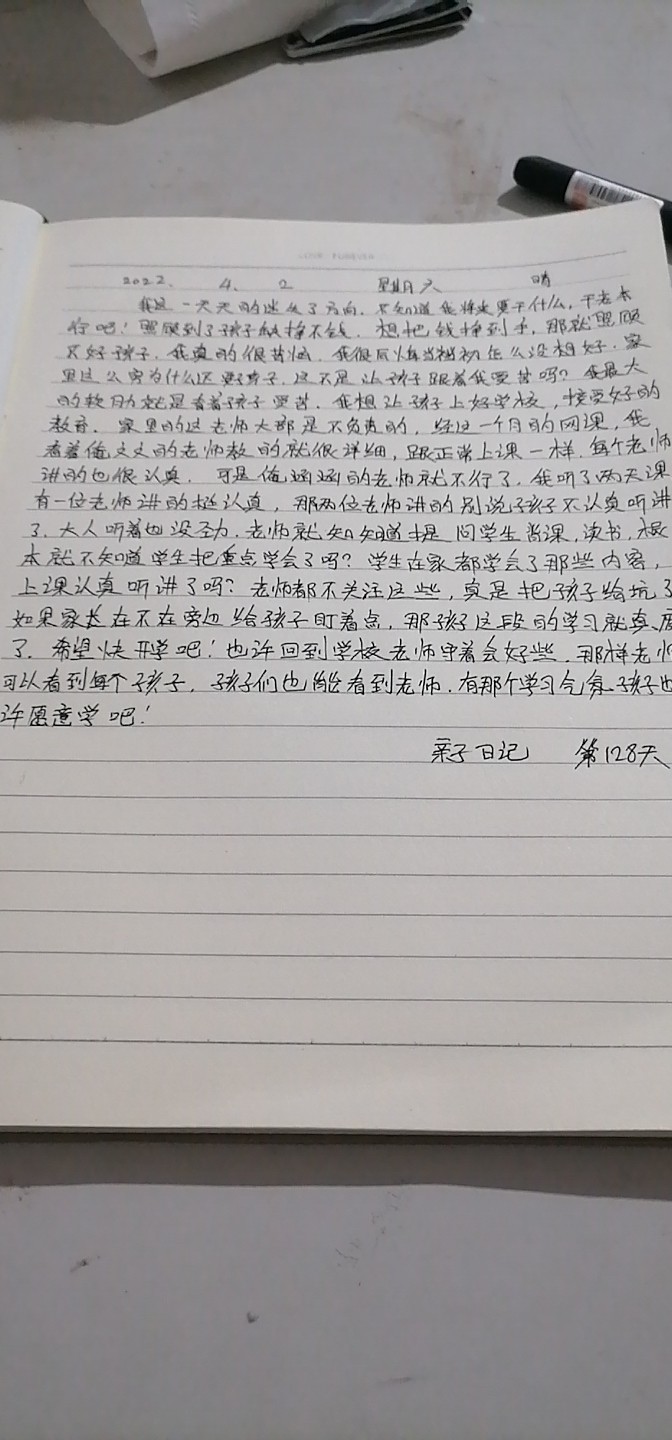 2022. 4. 2 星期六 晴
我这一天天的迷失了方向. 不知道我将来要干什么, 干老本
行吧! 照顾到了孩子却挣不钱. 想把钱挣到手, 那就照顾
不好孩子. 我真的很苦恼. 我很后悔当初怎么没想好. 家
里这么穷为什么还要孩子, 这不是让孩子跟着我受苦吗? 我最大
的软肋就是看着孩子受苦. 我想让孩子上好学校, 接受好的
教育. 家里的这老师大部是不负责的, 经过一个月的网课, 我
看着俺文文的老师教的就很详细, 跟正常上课一样. 每个老师
讲的也很认真. 可是俺涵涵的老师就不行了, 我听了两天课
有一位老师讲的挺认真, 那两位老师讲的别说孩子不认真听讲
了. 大人听着也没劲. 老师就知知道提问学生背课, 读书, 根
本就不知道学生把重点学会了吗? 学生在家都学会了那些内容,
上课认真听讲了吗? 老师都不关注这些, 真是把孩子给坑了
如果家长在不在旁边给孩子盯着点, 那孩子这段的学习就真废
了. 希望快开学吧! 也许回到学校老师守着会好些. 那样老师
可以看到每个孩子. 孩子们也能看到老师. 有那个学习气氛孩子也
许愿意学吧!
亲子日记 第128天